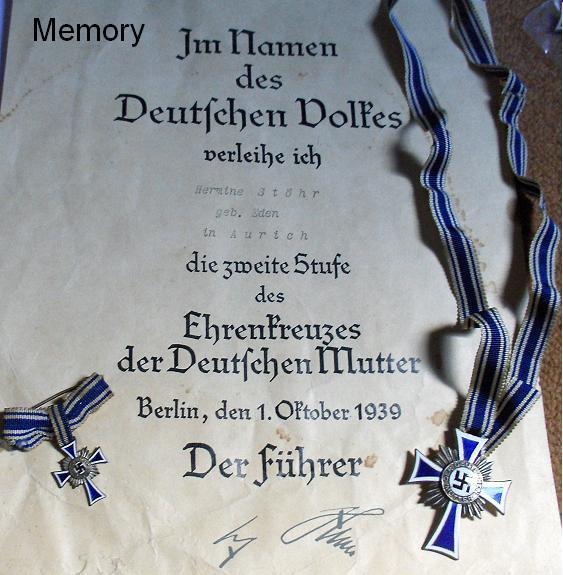 Memory
Im Namen
des
Deutschen Volkes
verleihe ich
Hermine Stöhr
geb. Eden
in Aurich
die zweite Stufe
des
Ehrenkreuzes
der Deutschen Mutter
Berlin, den 1. Oktober 1939
Der Führer